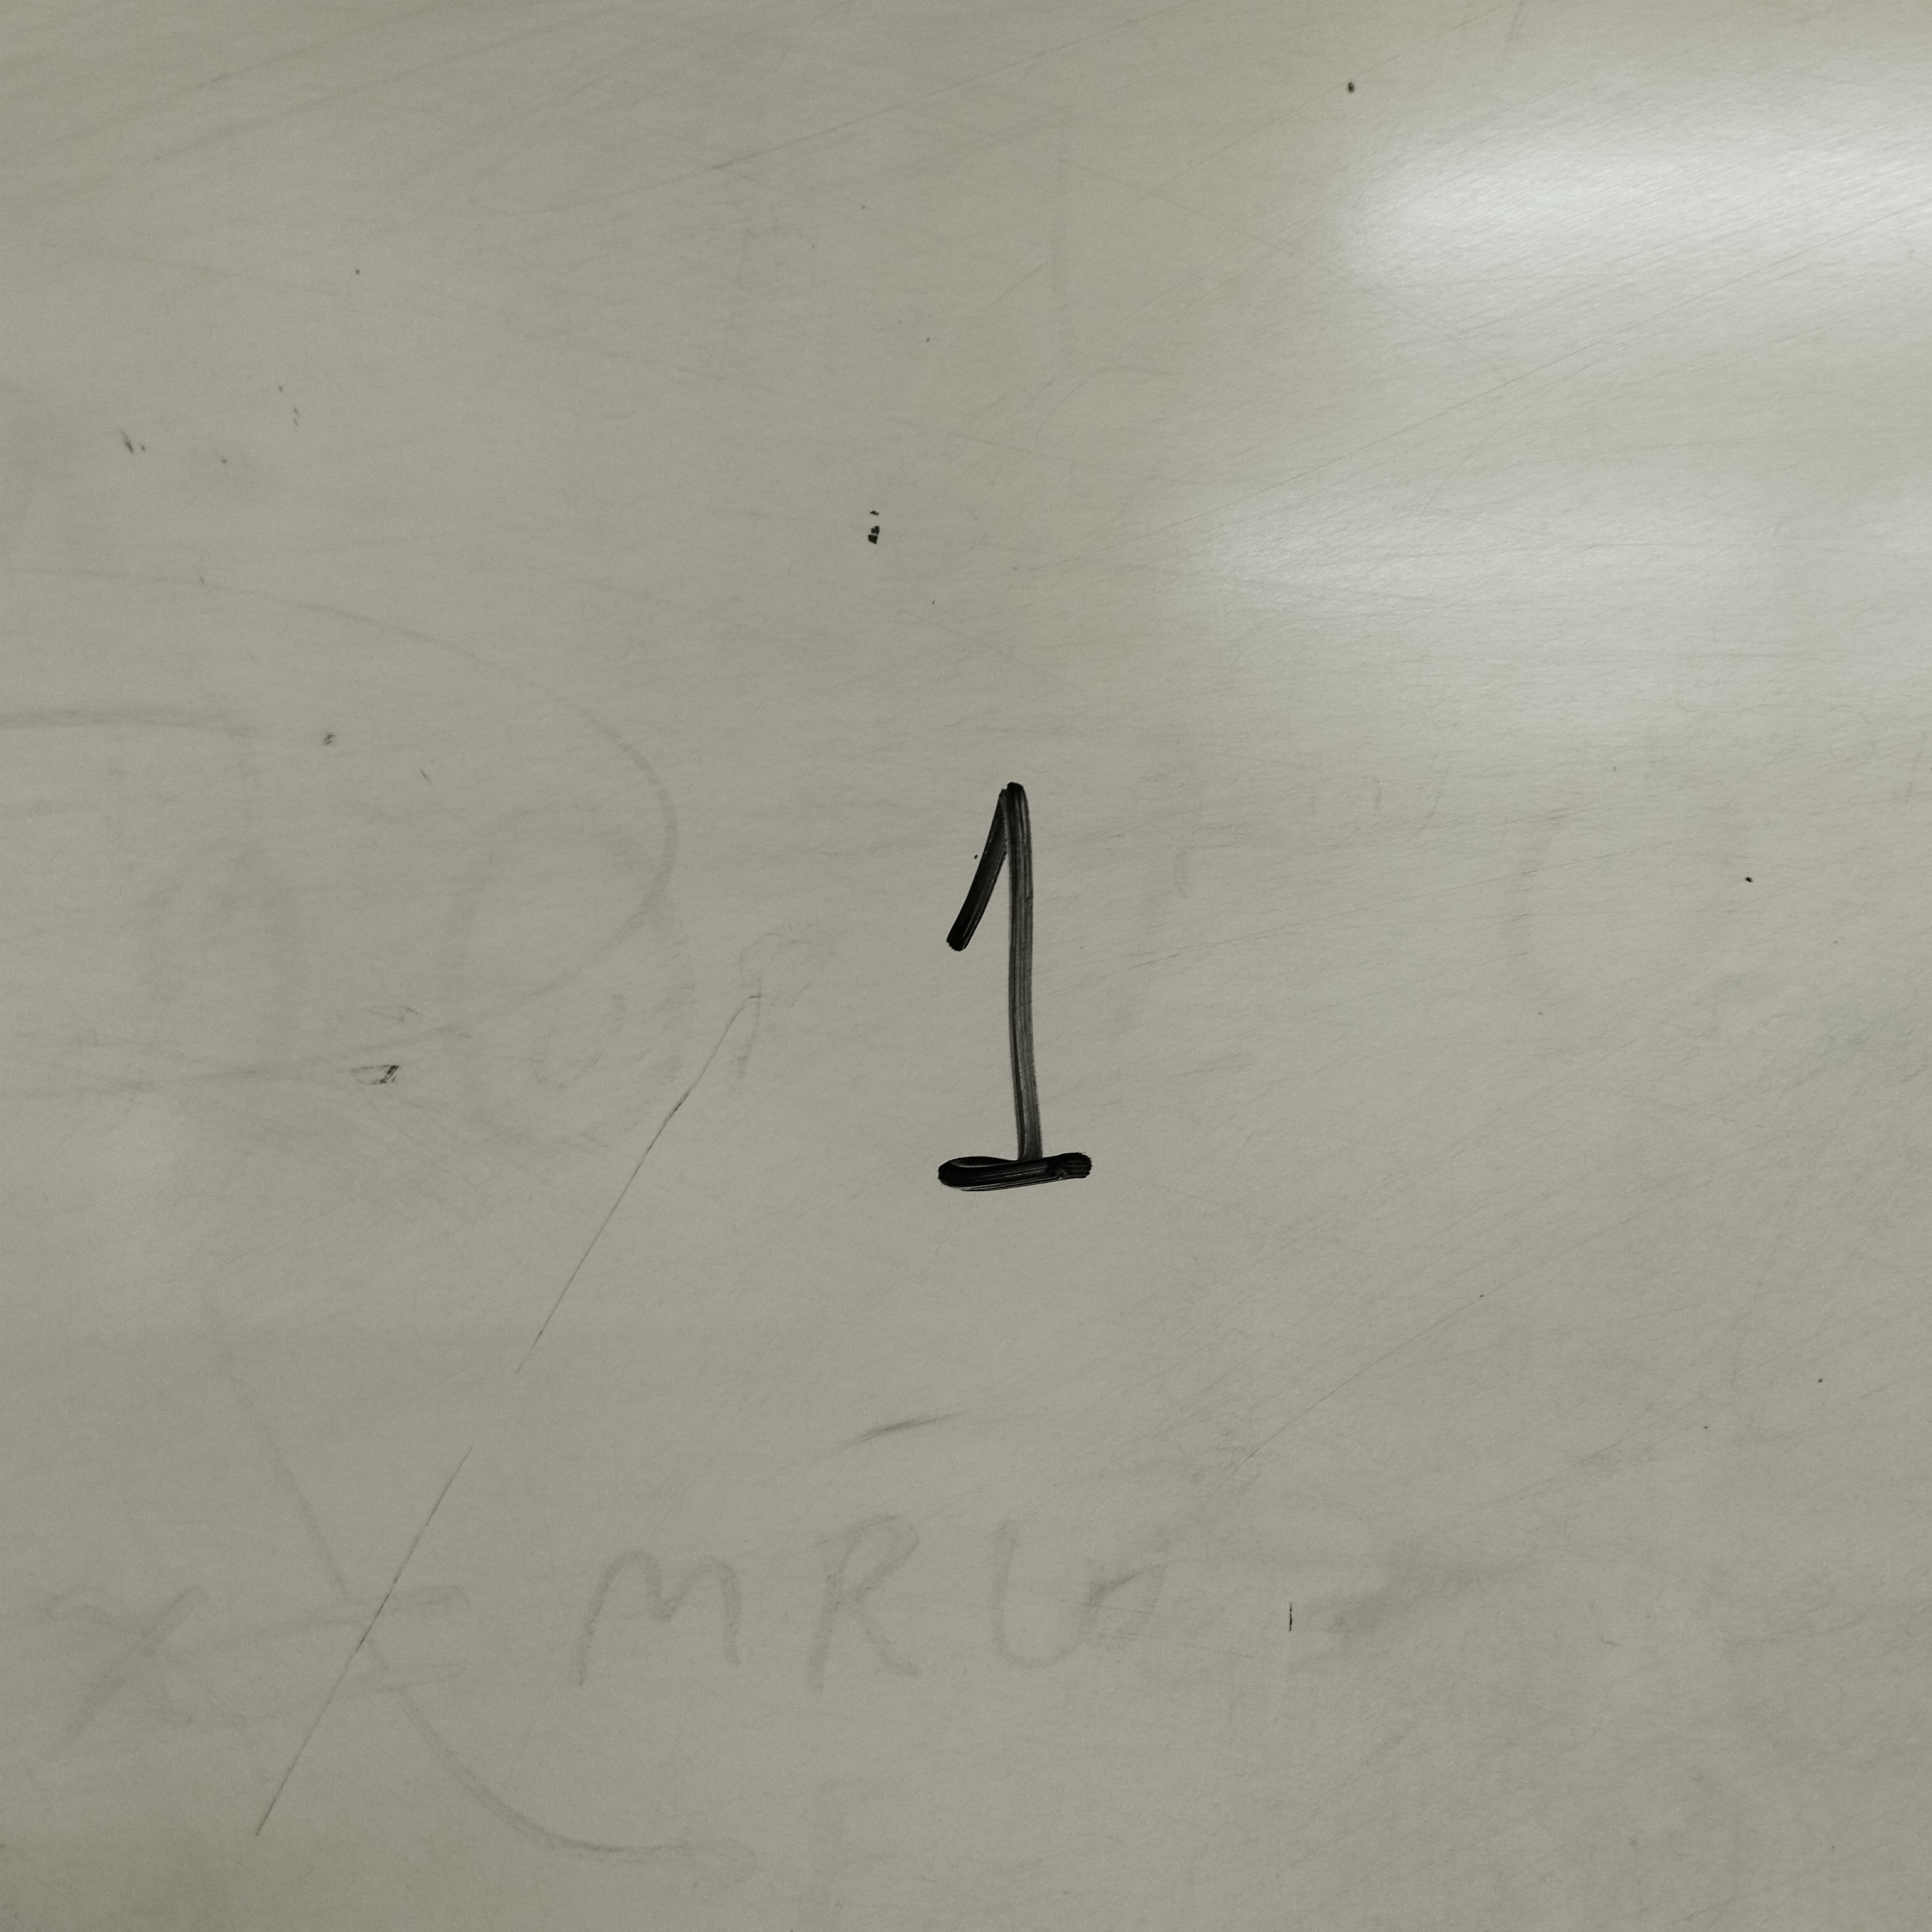 1
MRU